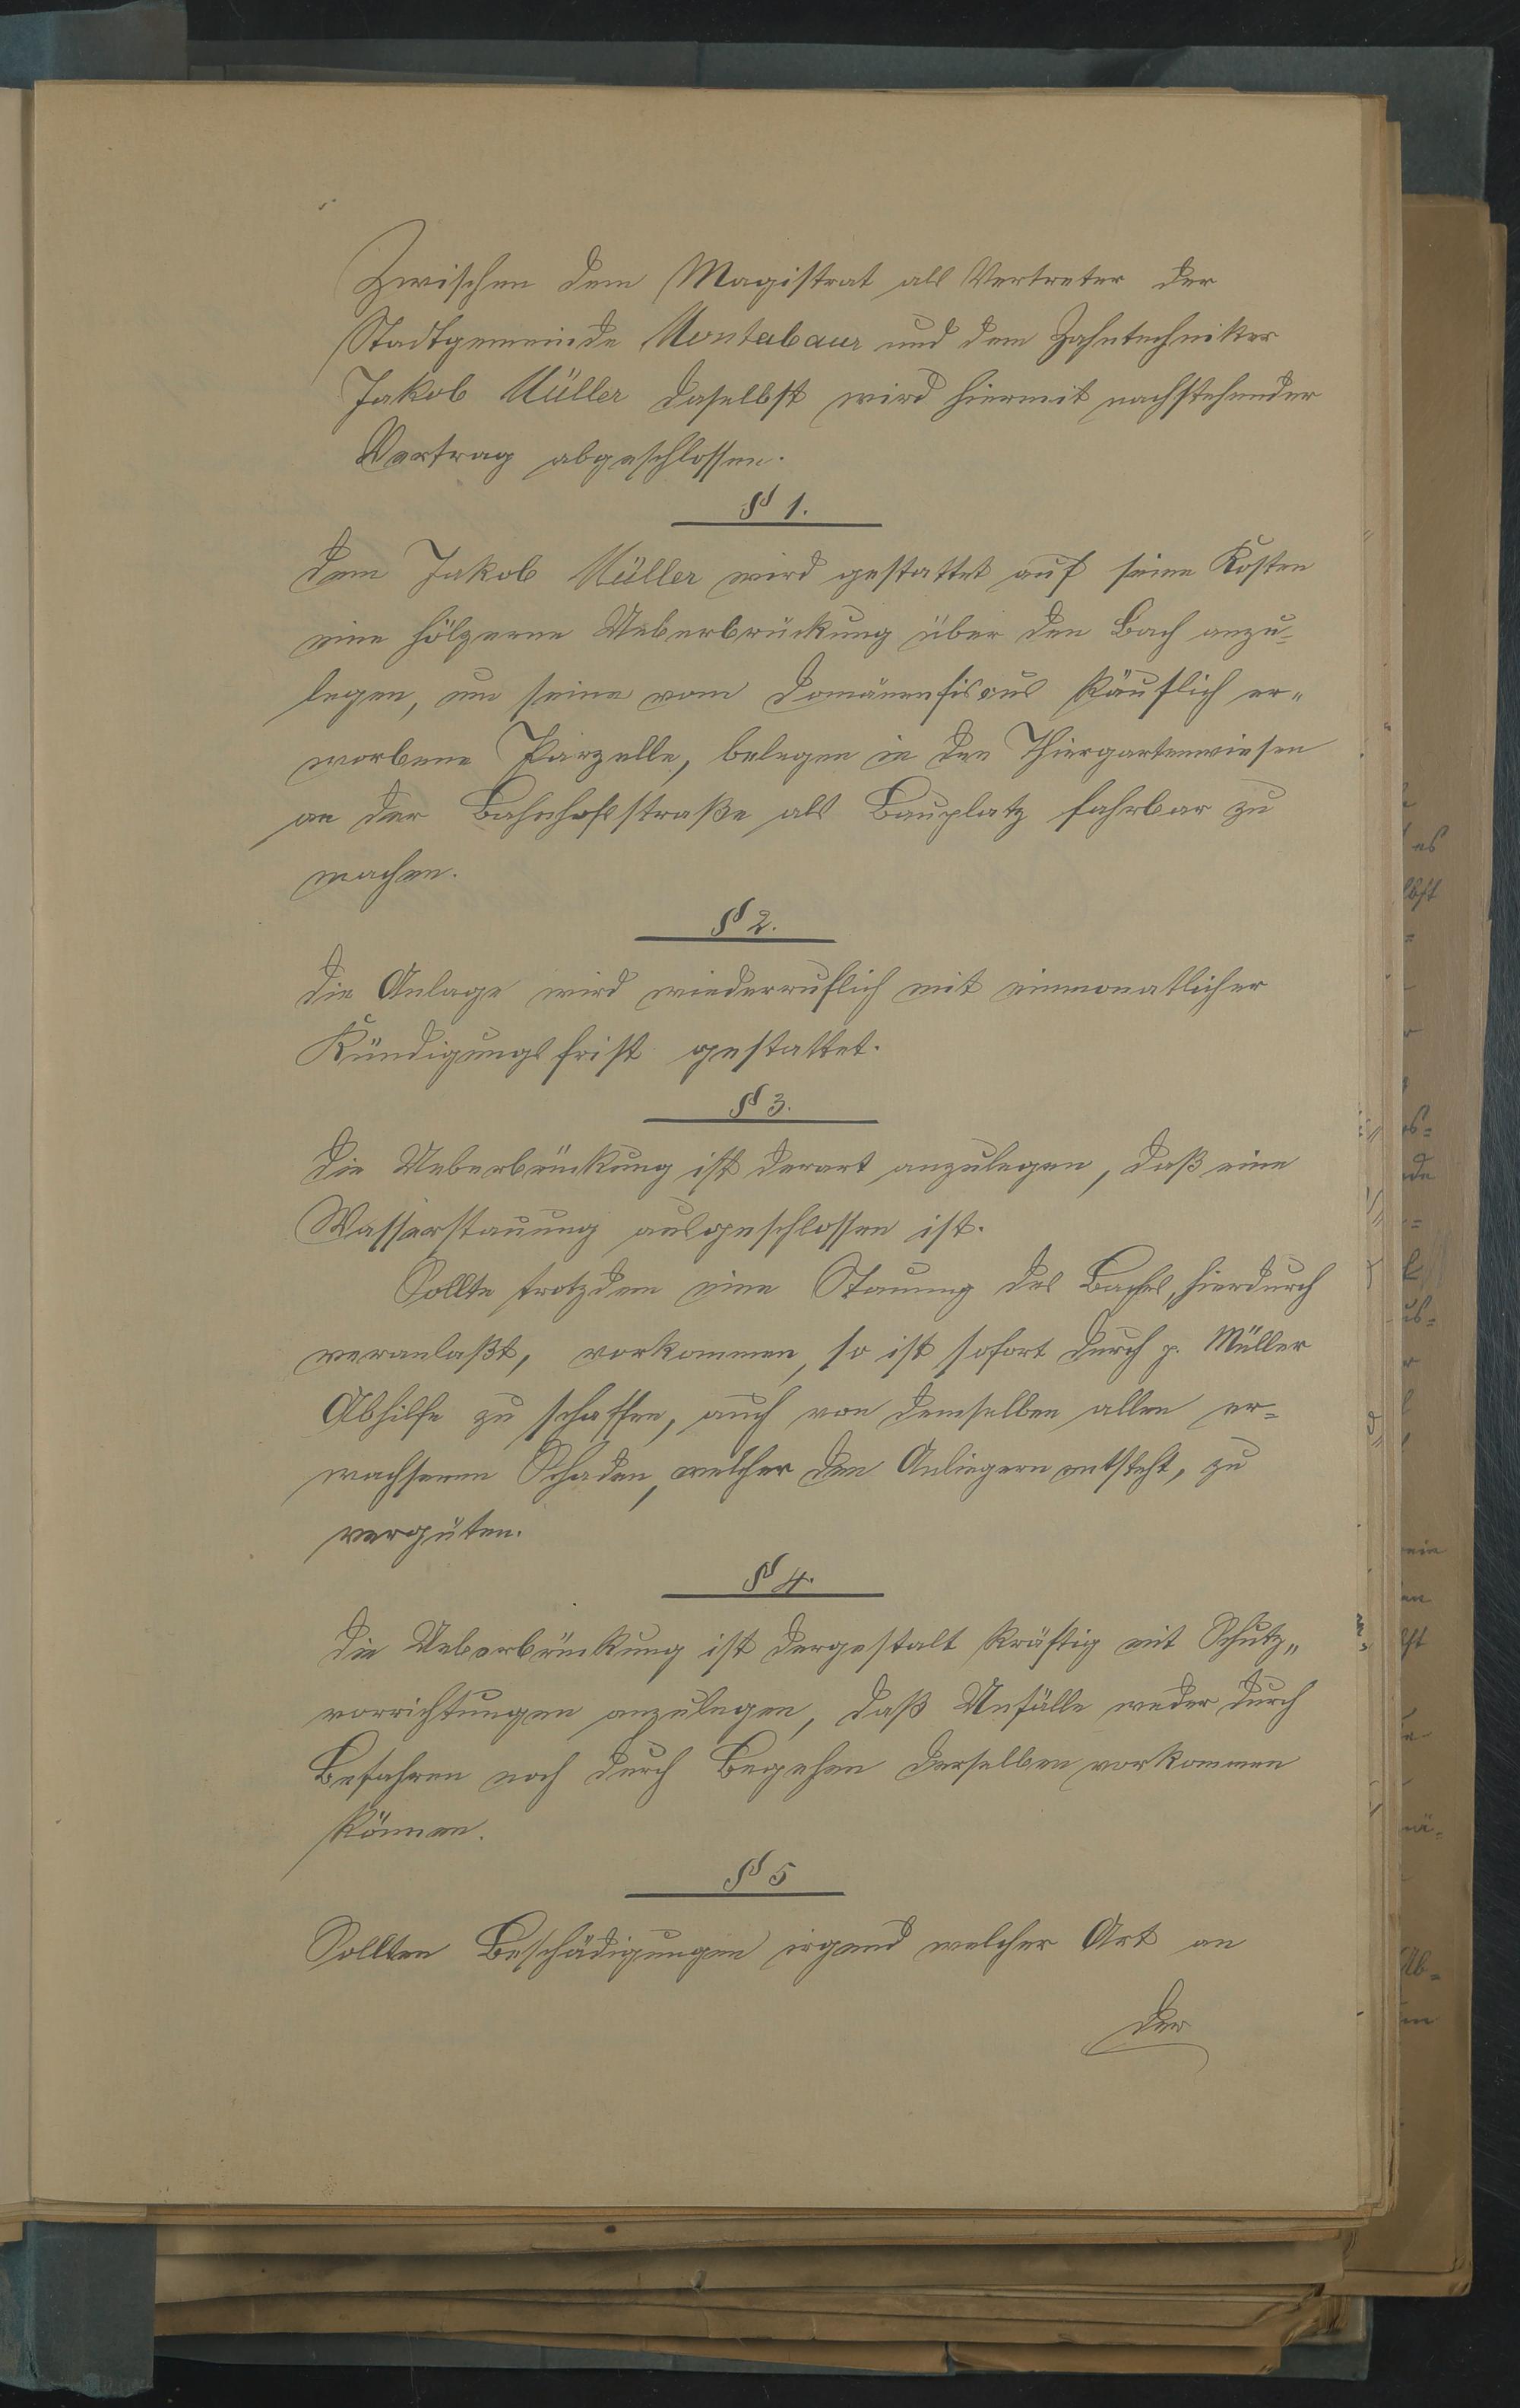 Zwischen dem Magistrat als Vertreter der
Stadtgemeinde Montabaur und dem Zahntechniker
Jakob Müller daselbst wird hiermit nachstehender
Vertrag abgeschlossen.
§ 1.
Dem Jakob Müller wird gestattet auf seine Kosten
eine hölzerne Ueberbrückung über den Bach anzu-
legen, um seine vom Domänenfiscus käuflich er-
worbene Parzelle, belegen in den Thiergartenwiesen
an der Bahnhofsstraße als Bauplatz fahrbar zu
machen.
§ 2.
Die Anlage wird wiederruflich mit einmonatlicher
Kündigungsfrist gestattet.
§ 3.
Die Ueberbrückung ist derart anzulegen, daß eine
Wasserstauung ausgeschlossen ist.
Sollte trotzdem eine Stauung des Baches, hierdurch
veranlaßt, vorkommen, so ist sofort durch p. Müller
Abhilfe zu schaffen, auch von demselben allen er-
wachsenen Schaden, welcher den Anliegern entsteht, zu
vergüten.
§ 4.
Die Ueberbrückung ist dergestalt kräftig mit Schutz-
vorrichtungen anzulegen, daß Unfälle weder durch
Befahren noch durch Begehen derselben vorkommen
können.
§ 5
Sollten Beschädigungen irgend welcher Art an
der